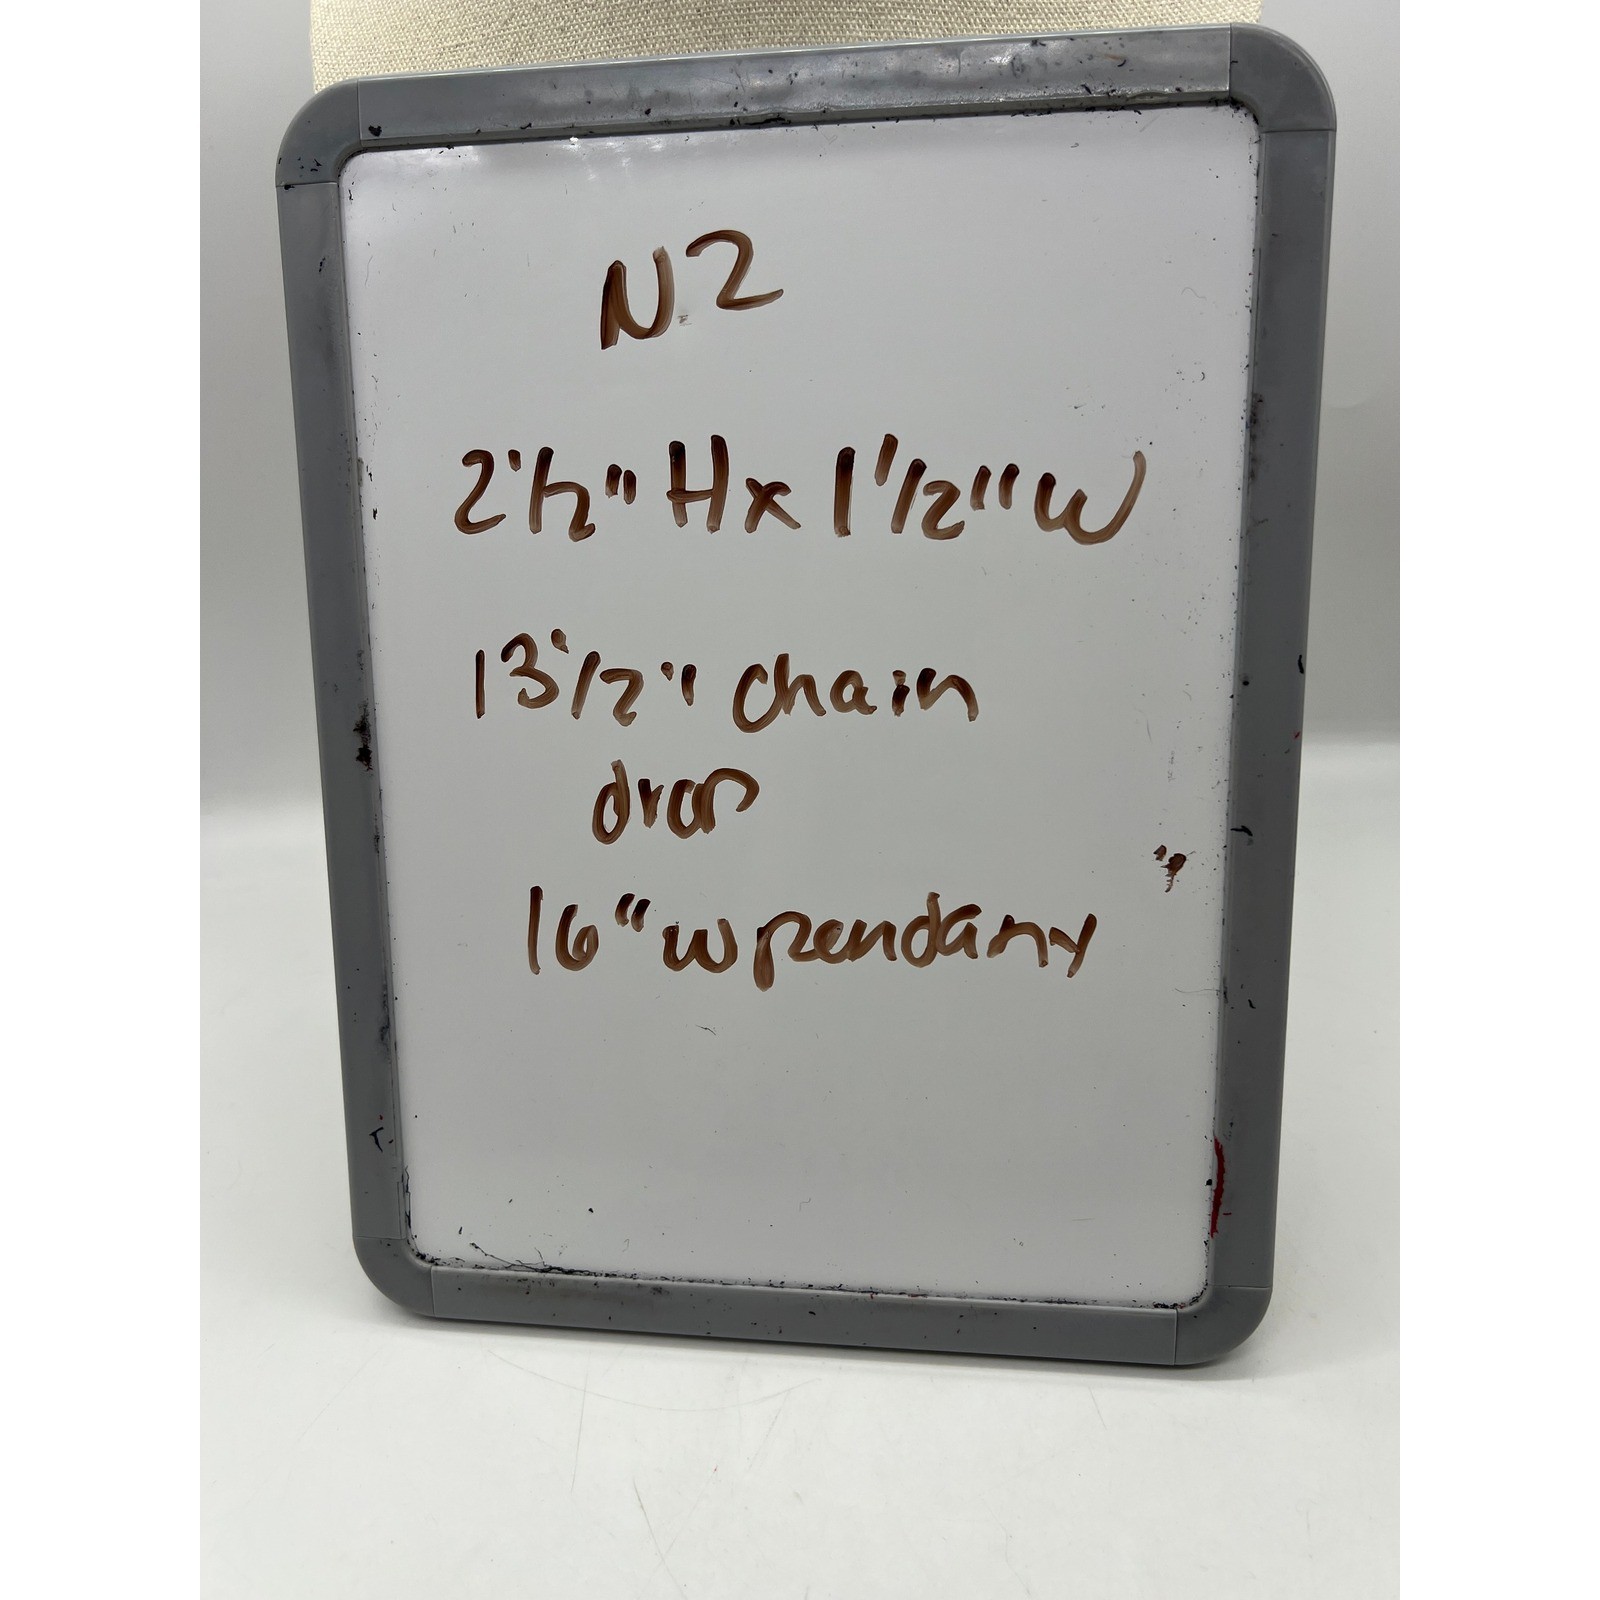 N2
2 1/2" H x 1 1/2" W
13 1/2" chain
drop
16" w pendant